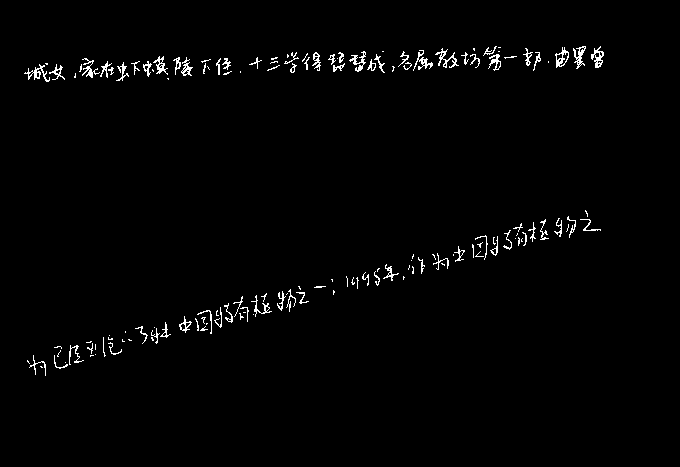 城女,家在虾蟆陵下住.十三学得琵琶成,名属教坊第一部.曲罢曾
为已中国特有植物之一;1995年,作为中国特有植物之